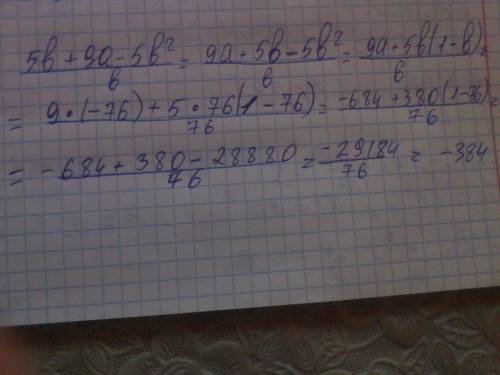 (5b + 9a - 5b²)/b = (9a + 5b - 5b²)/b = (9a + 5b(1 - b))/b =
= (9 · (-76) + 5 · 76(1 - 76))/76 = (-684 + 380(1 - 76))/76 =
= (-684 + 380 - 28880)/76 = (-29184)/76 = -384